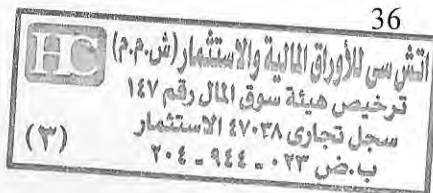 36
اتش سي للأوراق المالية والاستثمار (ش.م.م)
HC
ترخيص هيئة سوق المال رقم ١٤٧
سجل تجارى ٤٧٠٣٨ الاستثمار
ب.ض ٠٢٣ - ٩٤٤ - ٢٠٤
(٣)